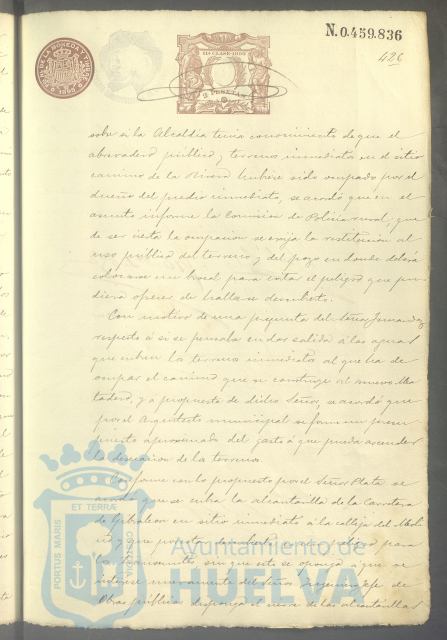 N.0.459.836
426
11ª CLASE-1893
sobre si la Alcaldía tenía conocimiento de que el
abrevadero público y terrenos inmediatos en el sitio
camino de la hubiese sido ocupado por el
dueño del predio inmediato, se acordó que en el
asunto informe la Comisión de Policía rural, y que
de ser cierta la ocupación se exija la restitución al
uso público del terreno y del pozo en donde deberá
colocarse un brocal para evitar el peligro que pu-
diera ofrecer de hallarse descubierto.
Con motivo de una pregunta del Señor Jernandez
respecto á si se pensaba en dar salida á las aguas
que cubren los terrenos inmediatos al que ha de
ocupar el camino que se construye al nuevo Ma-
tadero, y á propuesta de dicho Señor, se acordó que
por el Arquitecto municipal se forme un presu-
puesto aproximado del gasto á que pueda ascender
la desecación de los terrenos.
Conforme con lo propuesto por el Señor Plata se
acordó que se cubra la alcantarilla de la Carretera
de Gibraleon en sitio inmediato á la calleja del Moli-
sin que esto se oponga á que se
interese nuevamente del Señor Ingeniero Jefe de
Obras públicas disponga el cierre de las alcantarillas
PORTUS MARIS
ET TERRÆ
CUSTODIA
Ayuntamiento de
HUELVA